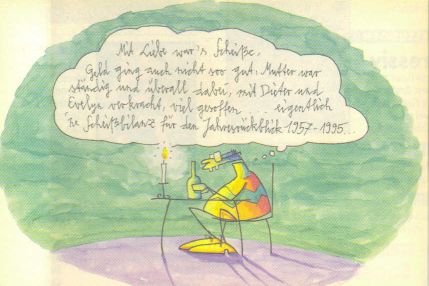 Mit Liebe war's Scheiße,
Geld ging auch nicht soo gut. Mutter war
ständig und überall dabei, mit Dieter und
Evelyn verkracht, viel gesoffen... eigentlich
'ne Scheißbilanz für den Jahresrückblick 1957-1995...